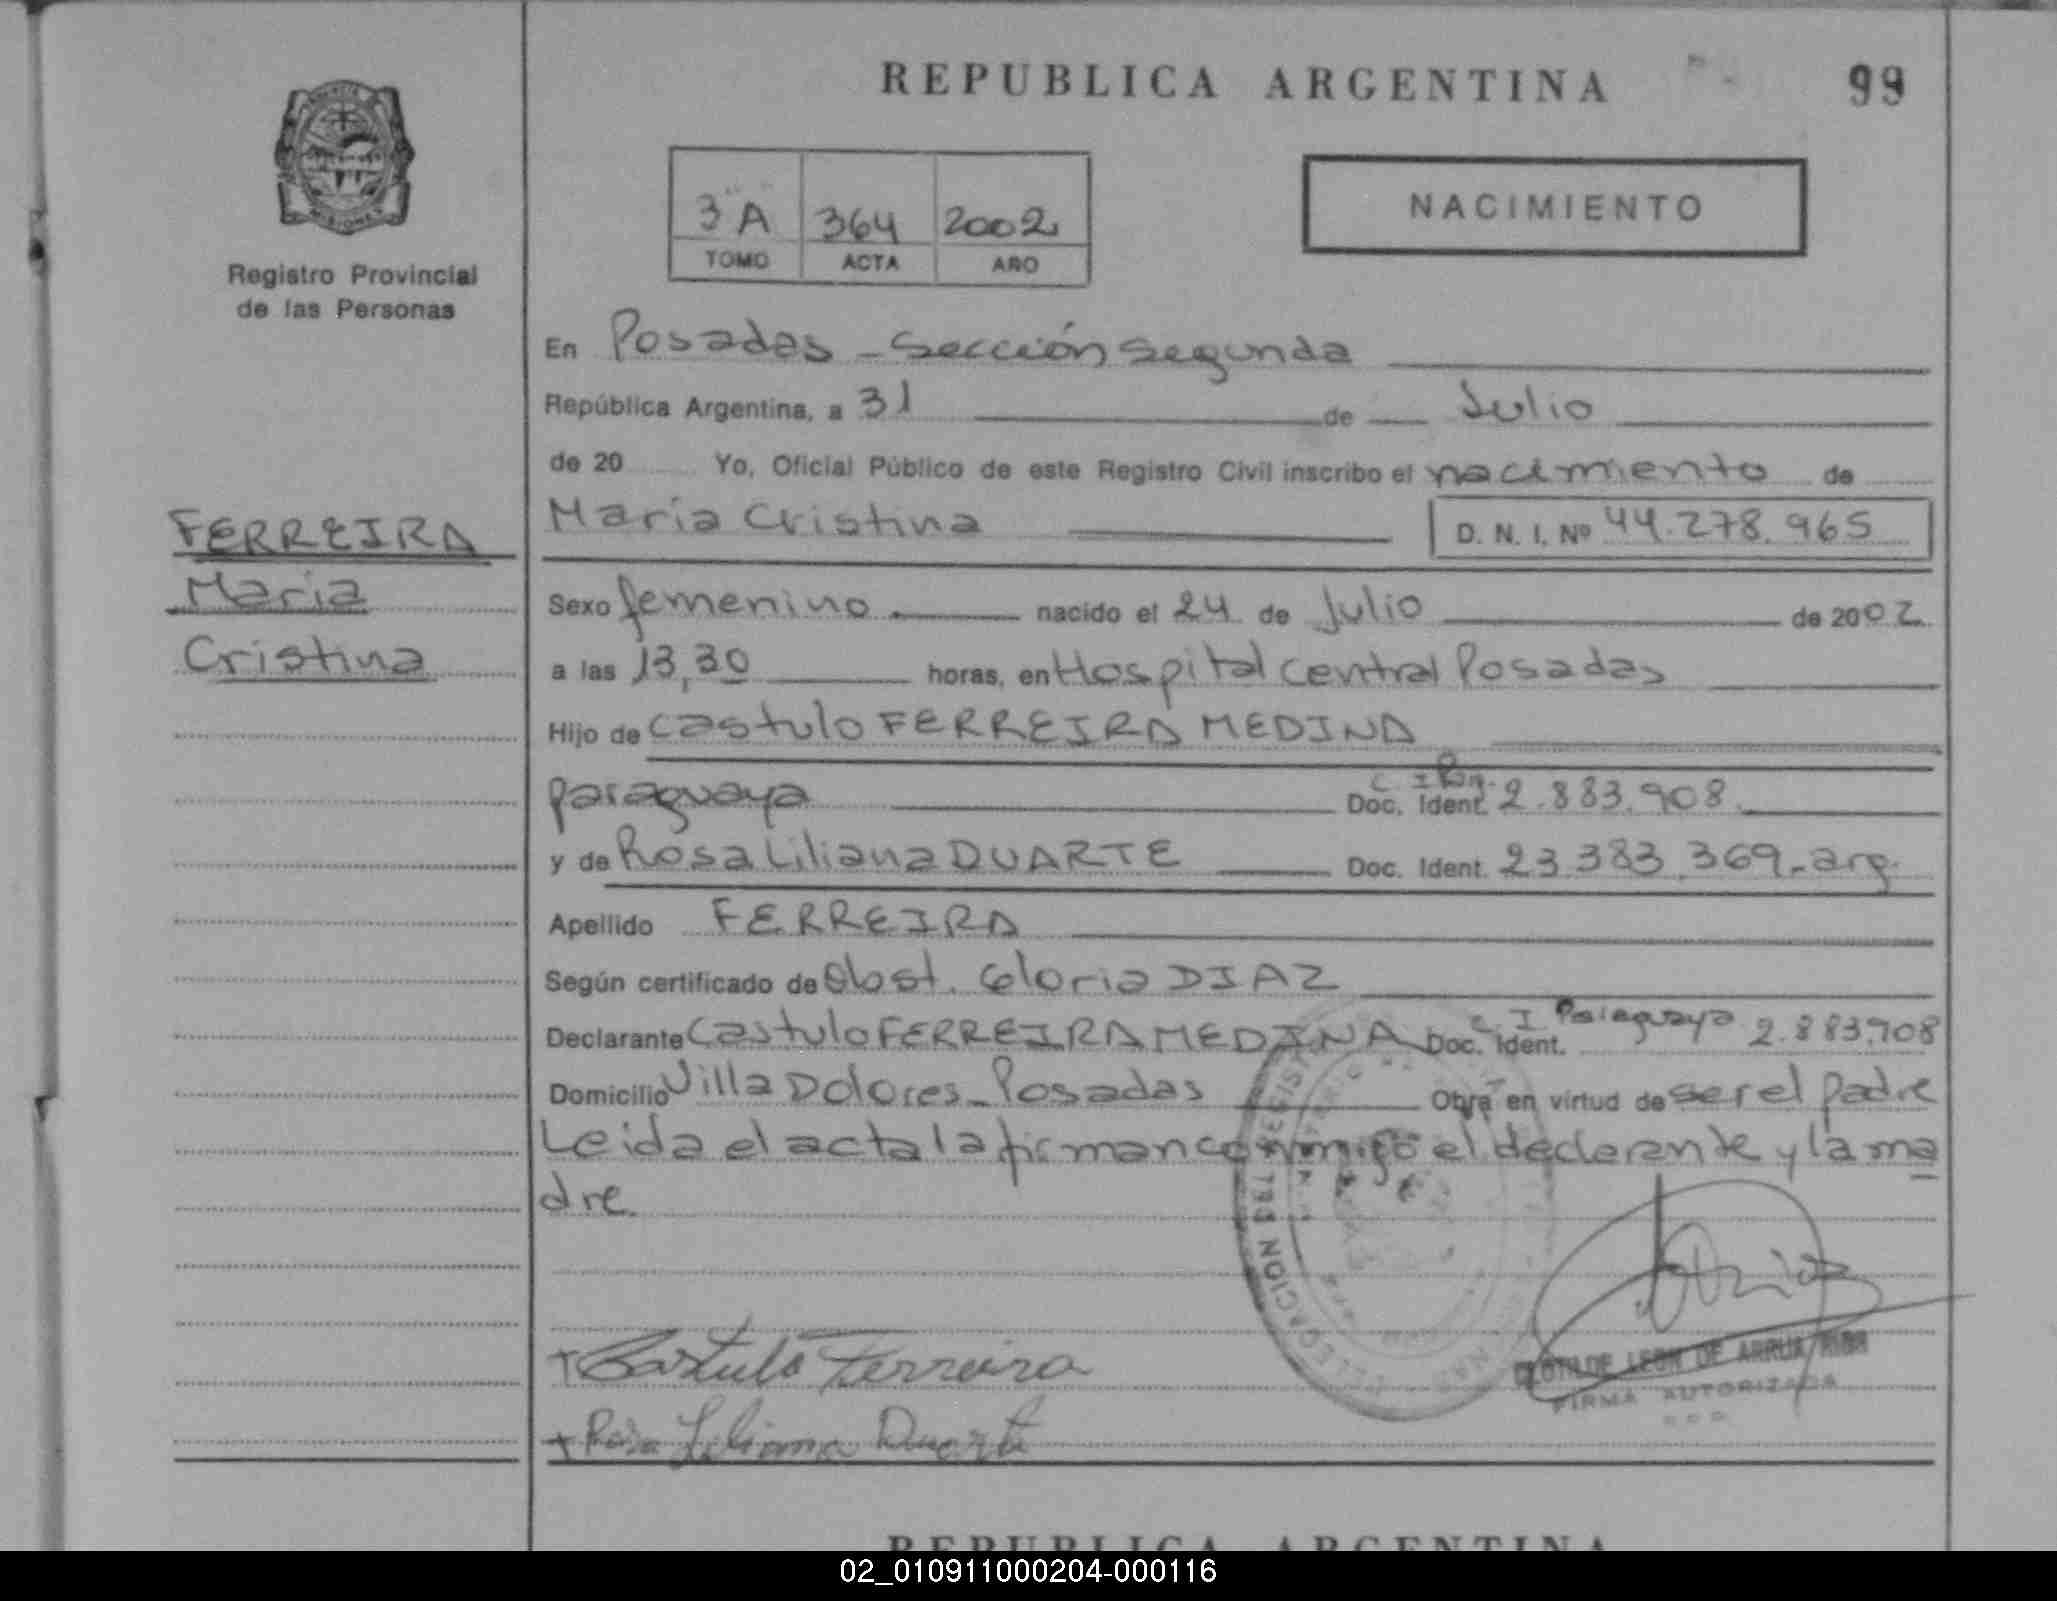 REPUBLICA ARGENTINA
99
MISIONES
Registro Provincial
de las Personas
3ºA 364 2002
TOMO ACTA AÑO
NACIMIENTO
En Posadas - Sección Segunda
República Argentina, a 31 de Julio
de 20 Yo, Oficial Público de este Registro Civil inscribo el nacimiento de
María Cristina D. N. I. Nº 44.278.965
FERREIRA
María
Cristina
Sexo femenino nacido el 24 de Julio de 2002
a las 13,30 horas, en Hospital Central Posadas
Hijo de Castulo FERREIRA MEDINA
paraguaya C. I. Pag. Doc. Ident. 2.883.908
y de Rosa Liliana DUARTE Doc. Ident. 23.383.369-arg.
Apellido FERREIRA
Según certificado de Obst. Gloria DIAZ
Declarante Castulo FERREIRA MEDINA Doc. Ident. C I Paraguaya 2.883.908
Domicilio Villa Dolores - Posadas Obra en virtud de ser el padre
Leida el acta la firman conmigo el declarante y la ma
dre.
Castulo Ferreira
Rosa Liliana Duarte
LEON DE ARRUA
FIRMA AUTORIZADA
REPUBLICA ARGENTINA
02_010911000204-000116